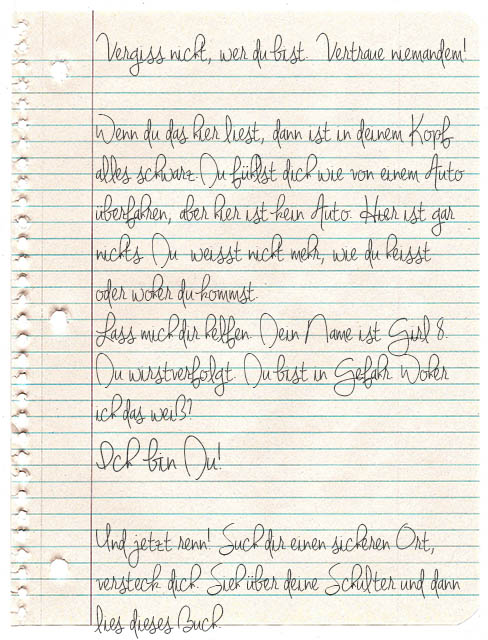 Vergiss nicht, wer du bist. Vertraue niemandem!
Wenn du das hier liest, dann ist in deinem Kopf
alles schwarz. Du fühlst dich wie von einem Auto
überfahren, aber hier ist kein Auto. Hier ist gar
nichts. Du weisst nicht mehr, wie du heisst
oder woher du kommst.
Lass mich dir helfen. Dein Name ist Girl 8.
Du wirst verfolgt. Du bist in Gefahr. Woher
ich das weiß?
Ich bin Du!
Und jetzt renn! Such dir einen sicheren Ort,
versteck dich. Sieh über deine Schulter und dann
lies dieses Buch.